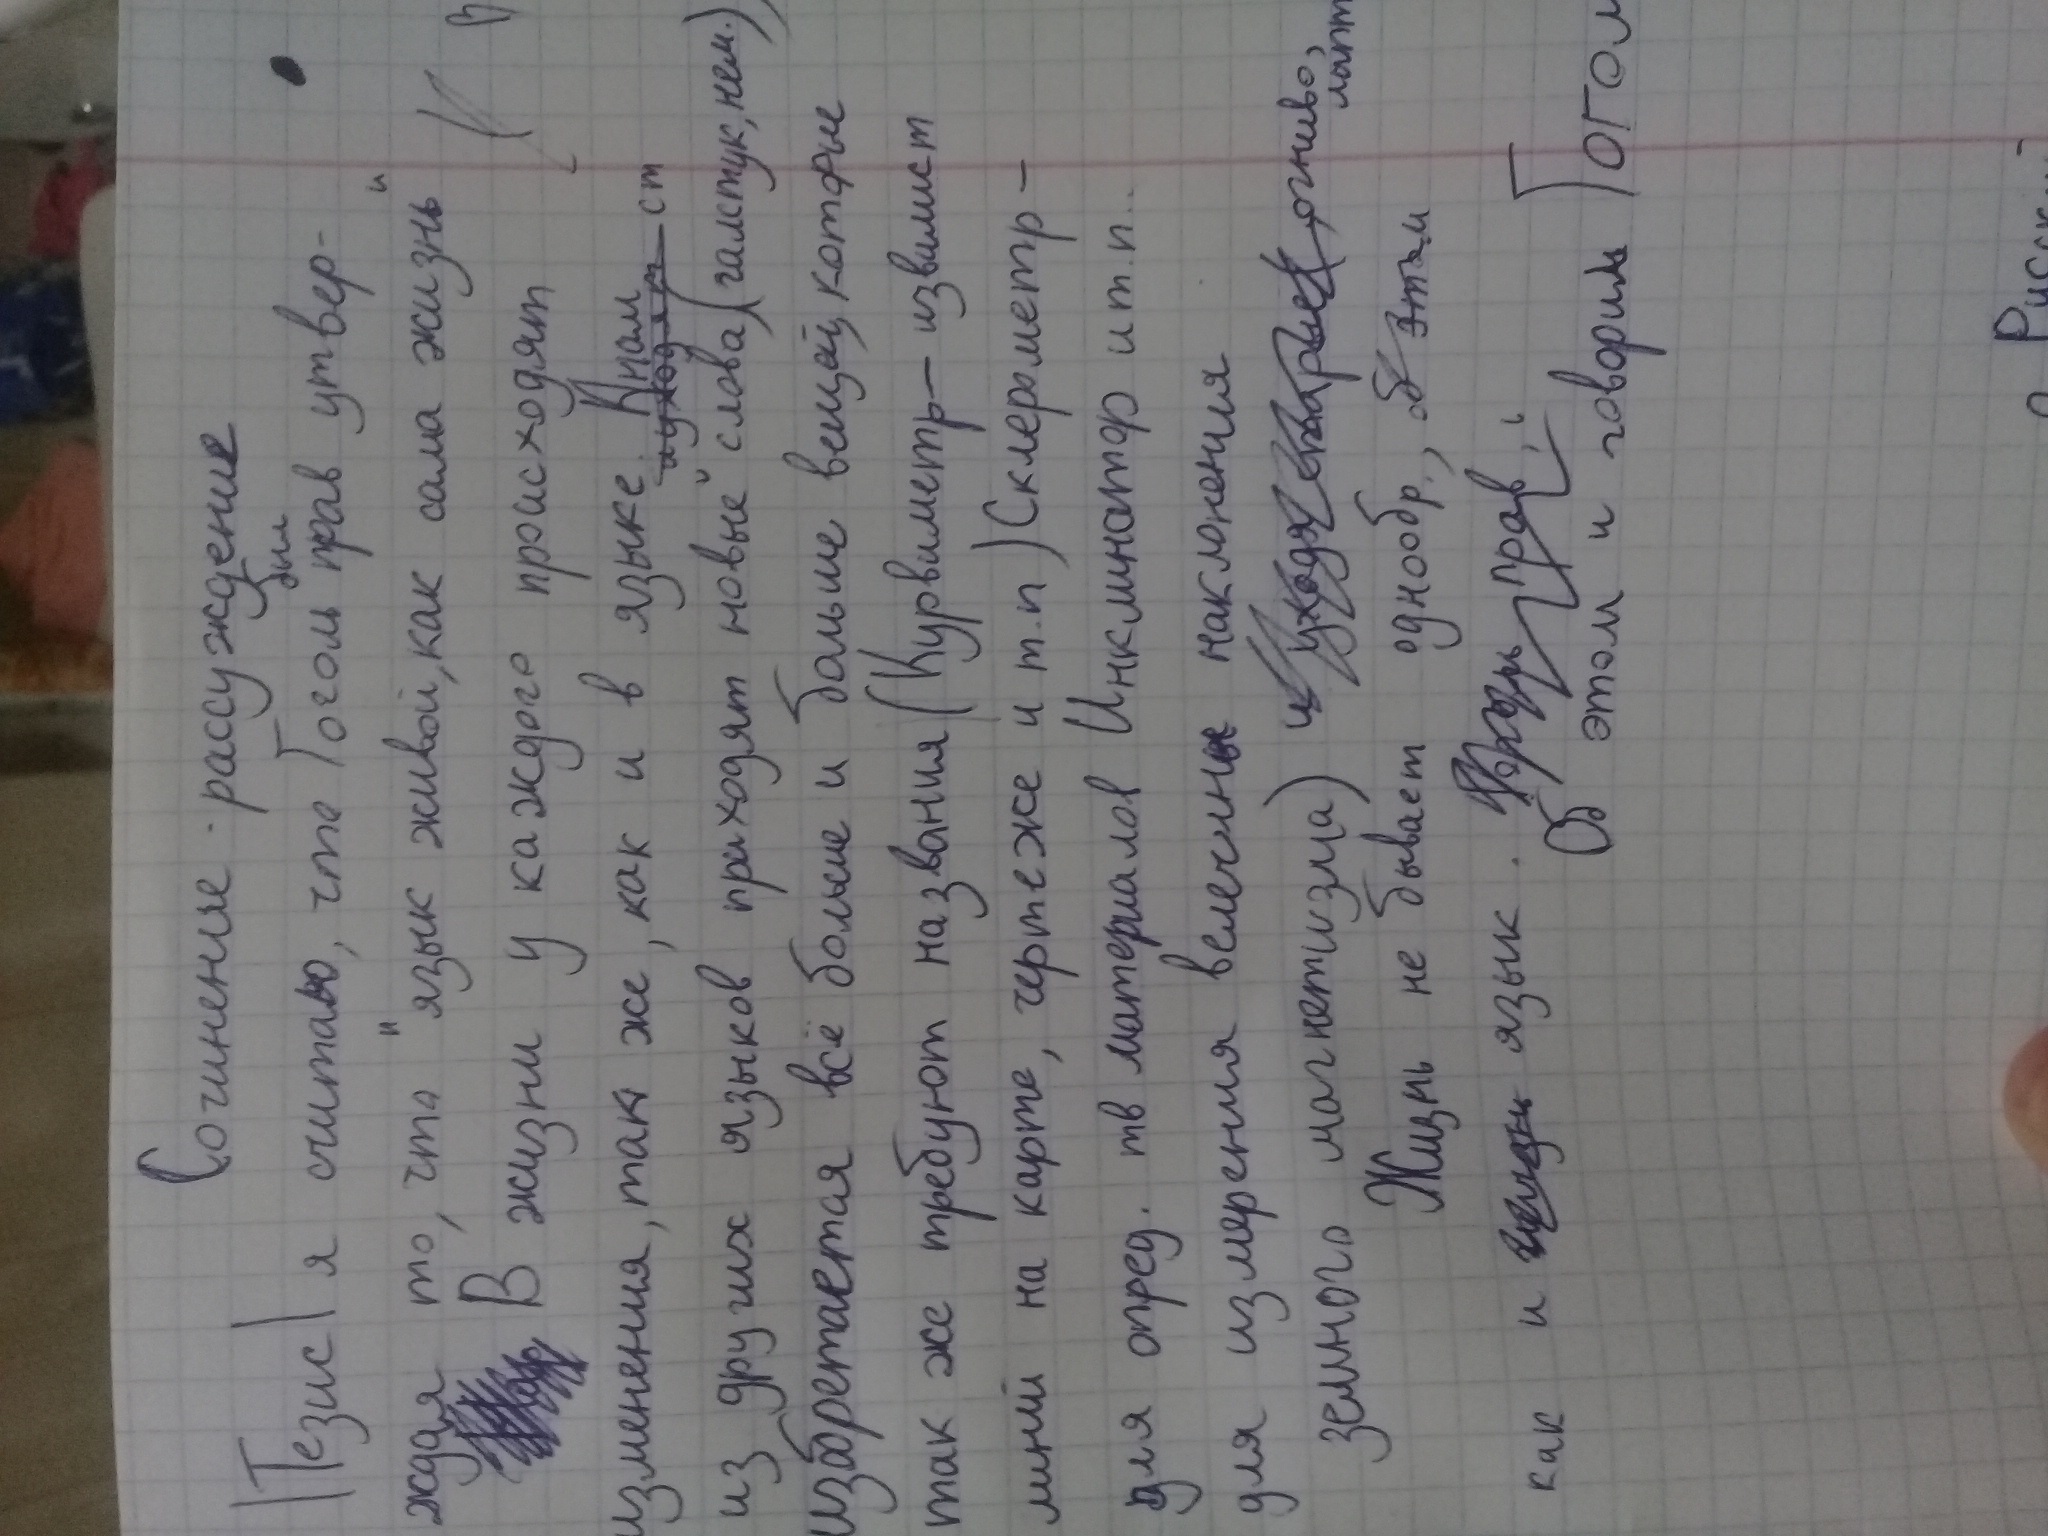 Сочинение - рассуждение
|Тезис| я считаю, что Гоголь был прав утвер-
ждая то, что "язык живой, как сама жизнь"
В жизни у каждого происходят
изменения, так же, как и в языке. К нам
из других языков приходят новые слова (галстук, нем.),
изабретается всё больше и больше вещей, которые
так же требуют названия (Курвиметр — извилист
линий на карте, чертеже и т.п) Склерометр —
для опред. тв материалов Инклинатор и т.п..
для измерения велечины наклонения
земного магнетизма) и уходят старые огниво,
лапт
Жизнь не бывает однообр., об этом
как и язык. Гоголь прав,
Об этом и говорил Гогол
Риск